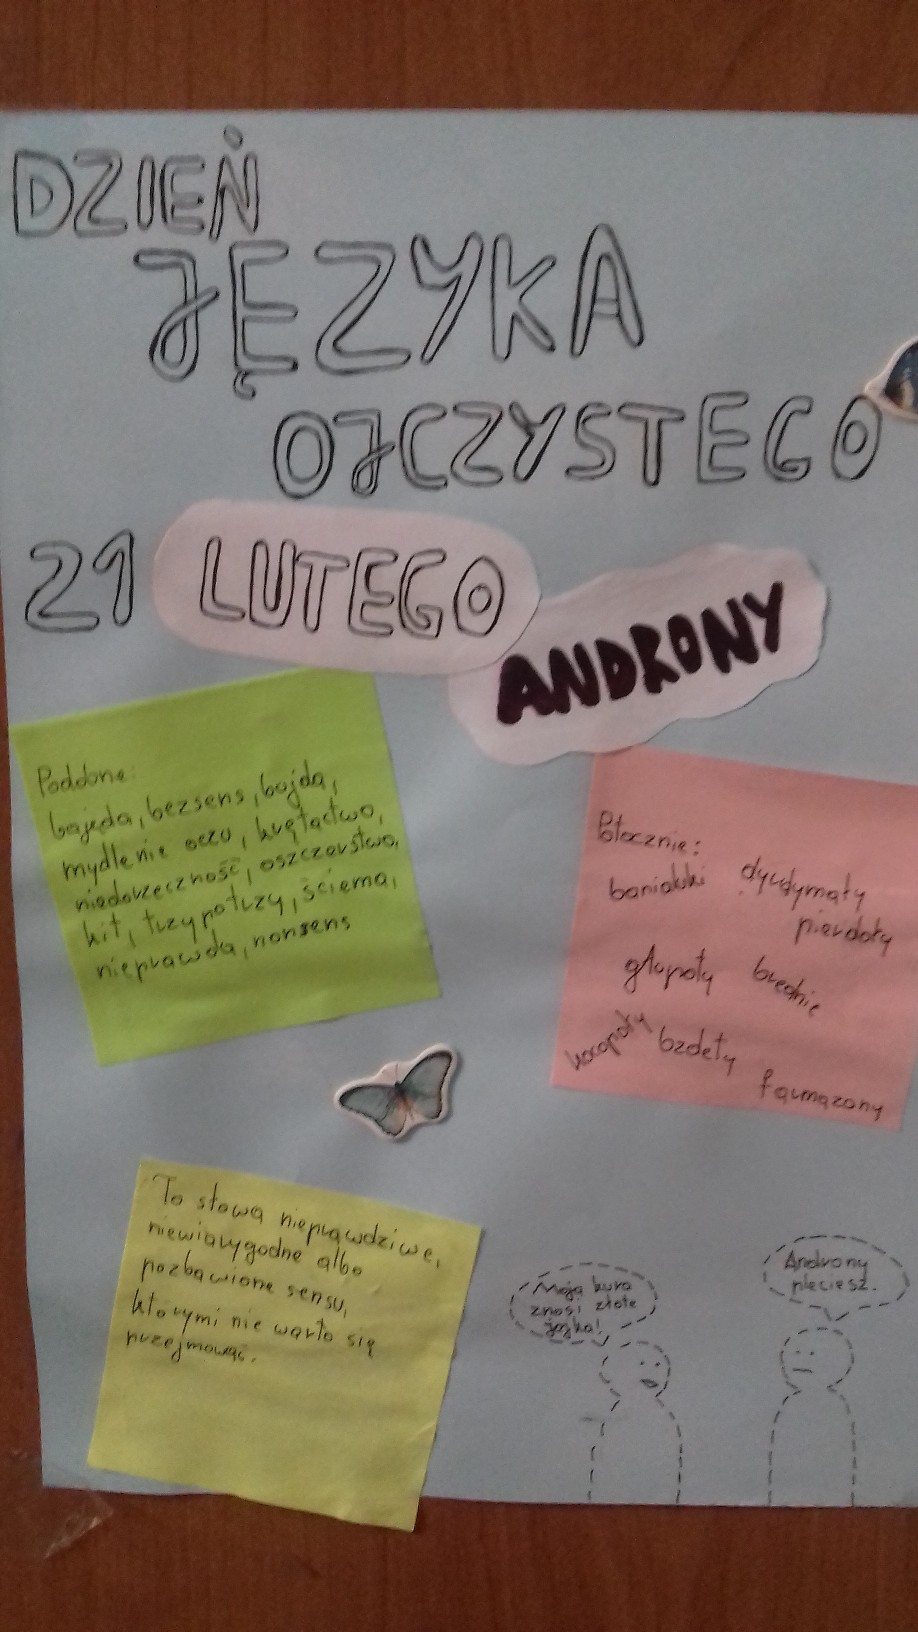 DZIEŃ
JĘZYKA
OJCZYSTEGO
21 LUTEGO
ANDRONY
Podobne:
bajęda, bezsens, bojda,
mydlenie oczu, krętactwo,
niedorzeczność, oszczerstwo,
kit, trzy po trzy, ściema,
nieprawda, nonsens
Potocznie:
banialuki dyrdymały
pierdoły
głupoty brednie
kocopoły bzdety
farmazony
To słowa nieprawdziwe,
niewiarygodne albo
pozbawione sensu,
którymi nie warto się
przejmować.
Moja kura
znosi złote
jajka!
Androny
pleciesz.